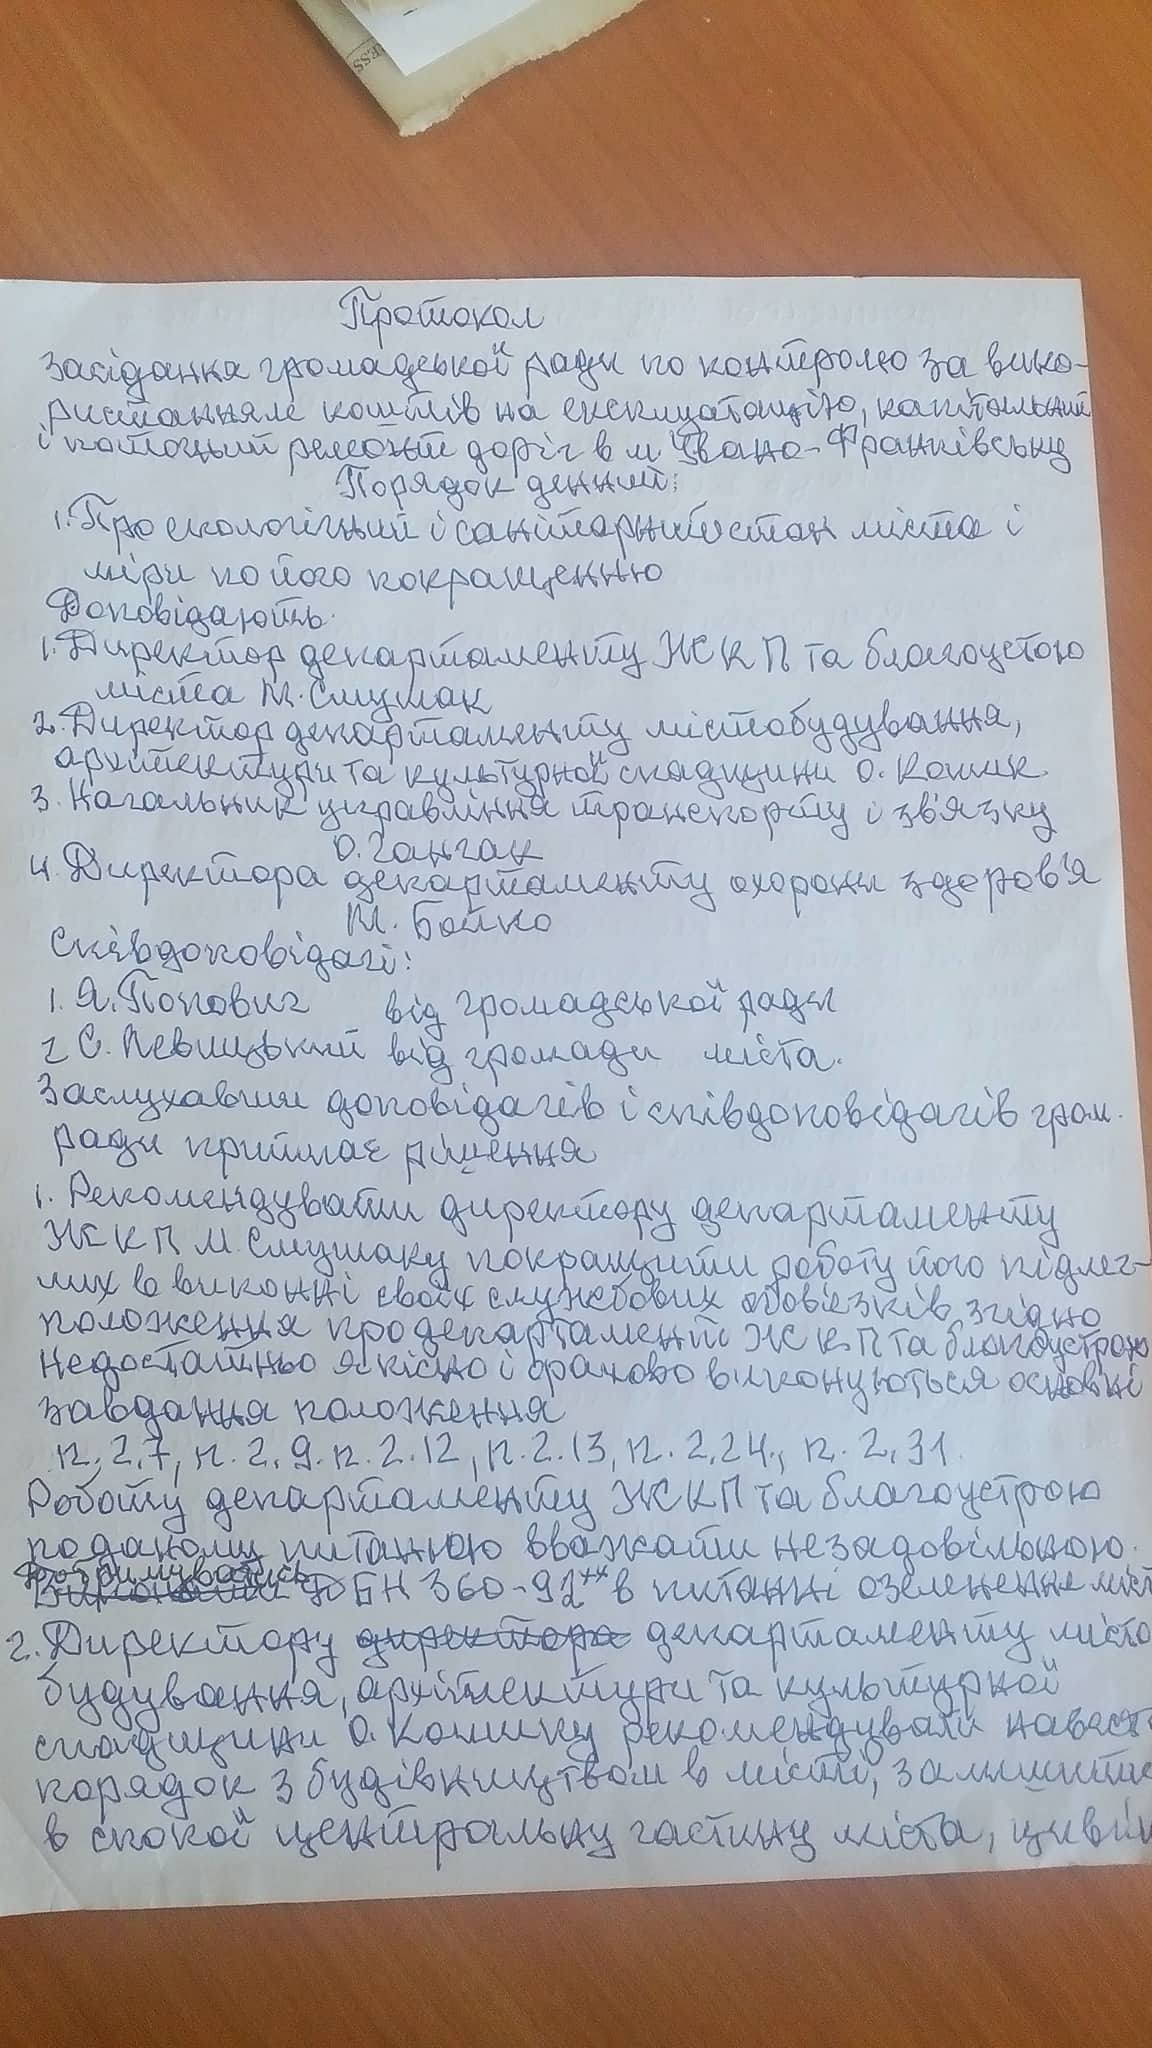 RESS
Протокол
засідання громадської ради по контролю за вико-
ристанням коштів на експлуатацію, капітальний
і поточний ремонт доріг в м. Івано-Франківську
Порядок денний:
1. Про екологічний і санітарний стан міста і
міри по його покращенню
Доповідають:
1. Директор департаменту ЖКП та благоустою
міста М. Смушак
2. Директор департаменту містобудування,
архітектури та культурної спадщини О. Кошик.
3. Начальник управління транспорту і зв'язку
О. Ганчак
4. Директора департаменту охорони здоров'я
М. Бойко
Співдоповідачі:
1. Я. Попович від громадської ради
2 С. Левицький від громади міста.
Заслухавши доповідачів і співдоповідачів гром.
ради приймає рішення
1. Рекомендувати директору департаменту
ЖКП М. Смушаку покращити роботу його підлег-
лих в виконні своїх службових обов'язків, згідно
положення про департамент ЖКП та благоустрою
недостатньо якісно і фахово виконуються основні
завдання положення
п. 2,7, п. 2.9. п. 2.12, п. 2.13, п. 2.24., п. 2.31.
Роботу департаменту ЖКП та благоустрою
по даному питанню вважати незадовільною.
Дотримуватись ДБН 360-92** в питанні озеленення міст
2. Директору директора департаменту місто
будування, архітектури та культурної
спадщини О. Кошику рекомендувати навести
порядок з будівництвом в місті, залишити
в спокої центральну частину міста,